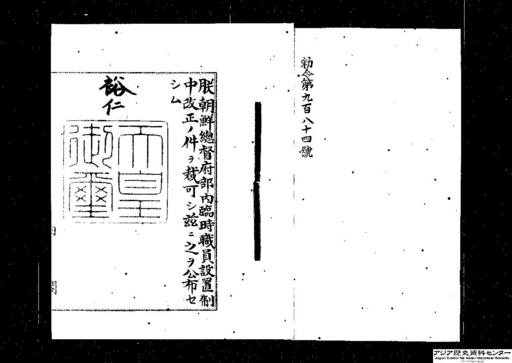 勅令第九百八十四號
朕朝鮮總督府部內臨時職員設置制
中改正ノ件ヲ裁可シ茲ニ之ヲ公布セ
シム
裕仁
天皇
御璽
アジア歴史資料センター
Japan Center for Asian Historical Records